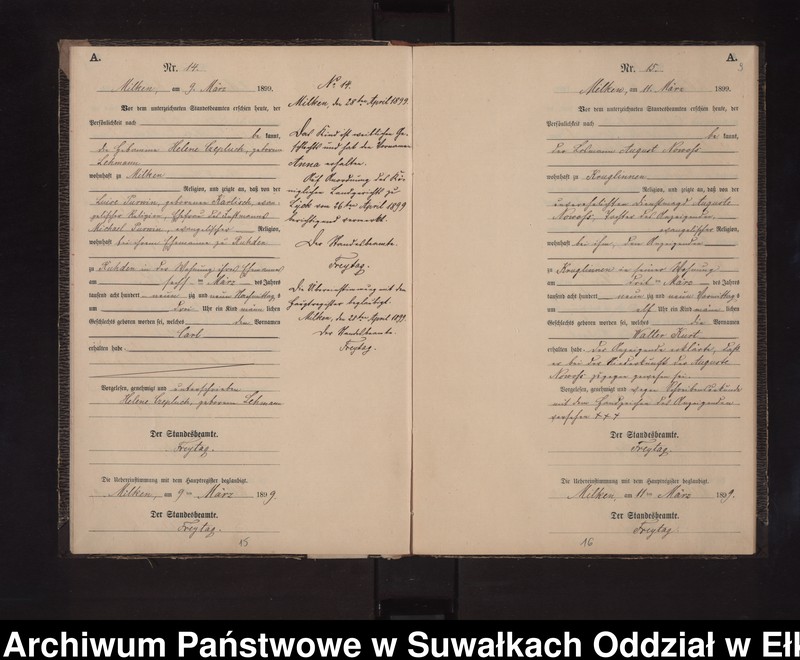 A.
Nr. 14.
Milken, am 9. März 1899.
Vor dem unterzeichneten Standesbeamten erschien heute, der
Persönlichkeit nach
be kannt,
die Hebamme Helene Czepluch, geborene
Lehmann
wohnhaft zu Milken
Religion, und zeigte an, daß von der
geborenen evan-
gelischer Religion, Ehefrau des
Michael evangelischer Religion,
wohnhaft bei ihrem Ehemanne zu Ruhden
zu Ruhden in der Wohnung ihres Ehemannes
am sechsten März des Jahres
tausend acht hundert neun zig und neun Nachmittags
um drei Uhr ein Kind männ lichen
Geschlechts geboren worden sei, welches den Vornamen
Carl
erhalten habe.
Vorgelesen, genehmigt und unterschrieben
Helene Czepluch, geborene Lehmann
Der Standesbeamte.
Freytag.
Die Uebereinstimmung mit dem Hauptregister beglaubigt.
Milken, am 9ten März 1899.
Der Standesbeamte.
Freytag.
15
No 14.
Milken, den 28ten April 1899.
Das Kind ist weiblichen Ge-
schlechts und hat den Vornamen
Anna erhalten.
Auf Anordnung des Kö-
niglichen Landgerichts zu
Lyck vom 26ten April 1899
berichtigend vermerkt.
Der Standesbeamte.
Freytag.
Die Übereinstimmung mit dem
Hauptregister beglaubigt.
Milken, den 28ten April 1899.
Der Standesbeamte
Freytag.
A.
3
Nr. 15.
Milken, am 11. März 1899.
Vor dem unterzeichneten Standesbeamten erschien heute, der
Persönlichkeit nach
be kannt,
der August Nowosz
wohnhaft zu Kruglinnen
Religion, und zeigte an, daß von der
unverehelichten Dienstmagd Auguste
Nowosz, Tochter des Anzeigenden
evangelischer Religion,
wohnhaft bei ihm, dem Anzeigenden
zu Kruglinnen in seiner Wohnung
am März des Jahres
tausend acht hundert neun zig und neun Vormittags
um elf Uhr ein Kind männ lichen
Geschlechts geboren worden sei, welches die Vornamen
Walter Kurt
erhalten habe. Der Anzeigende erklärte, daß
er bei der Niederkunft der Auguste
Nowosz zugegen gewesen sei.
Vorgelesen, genehmigt und wegen Schreibensunkunde
mit dem Handzeichen des Anzeigenden
versehen + + +
Der Standesbeamte.
Freytag.
Die Uebereinstimmung mit dem Hauptregister beglaubigt.
Milken, am 11ten März 1899.
Der Standesbeamte.
Freytag
16
Archiwum Państwowe w Suwałkach Oddział w Ełk